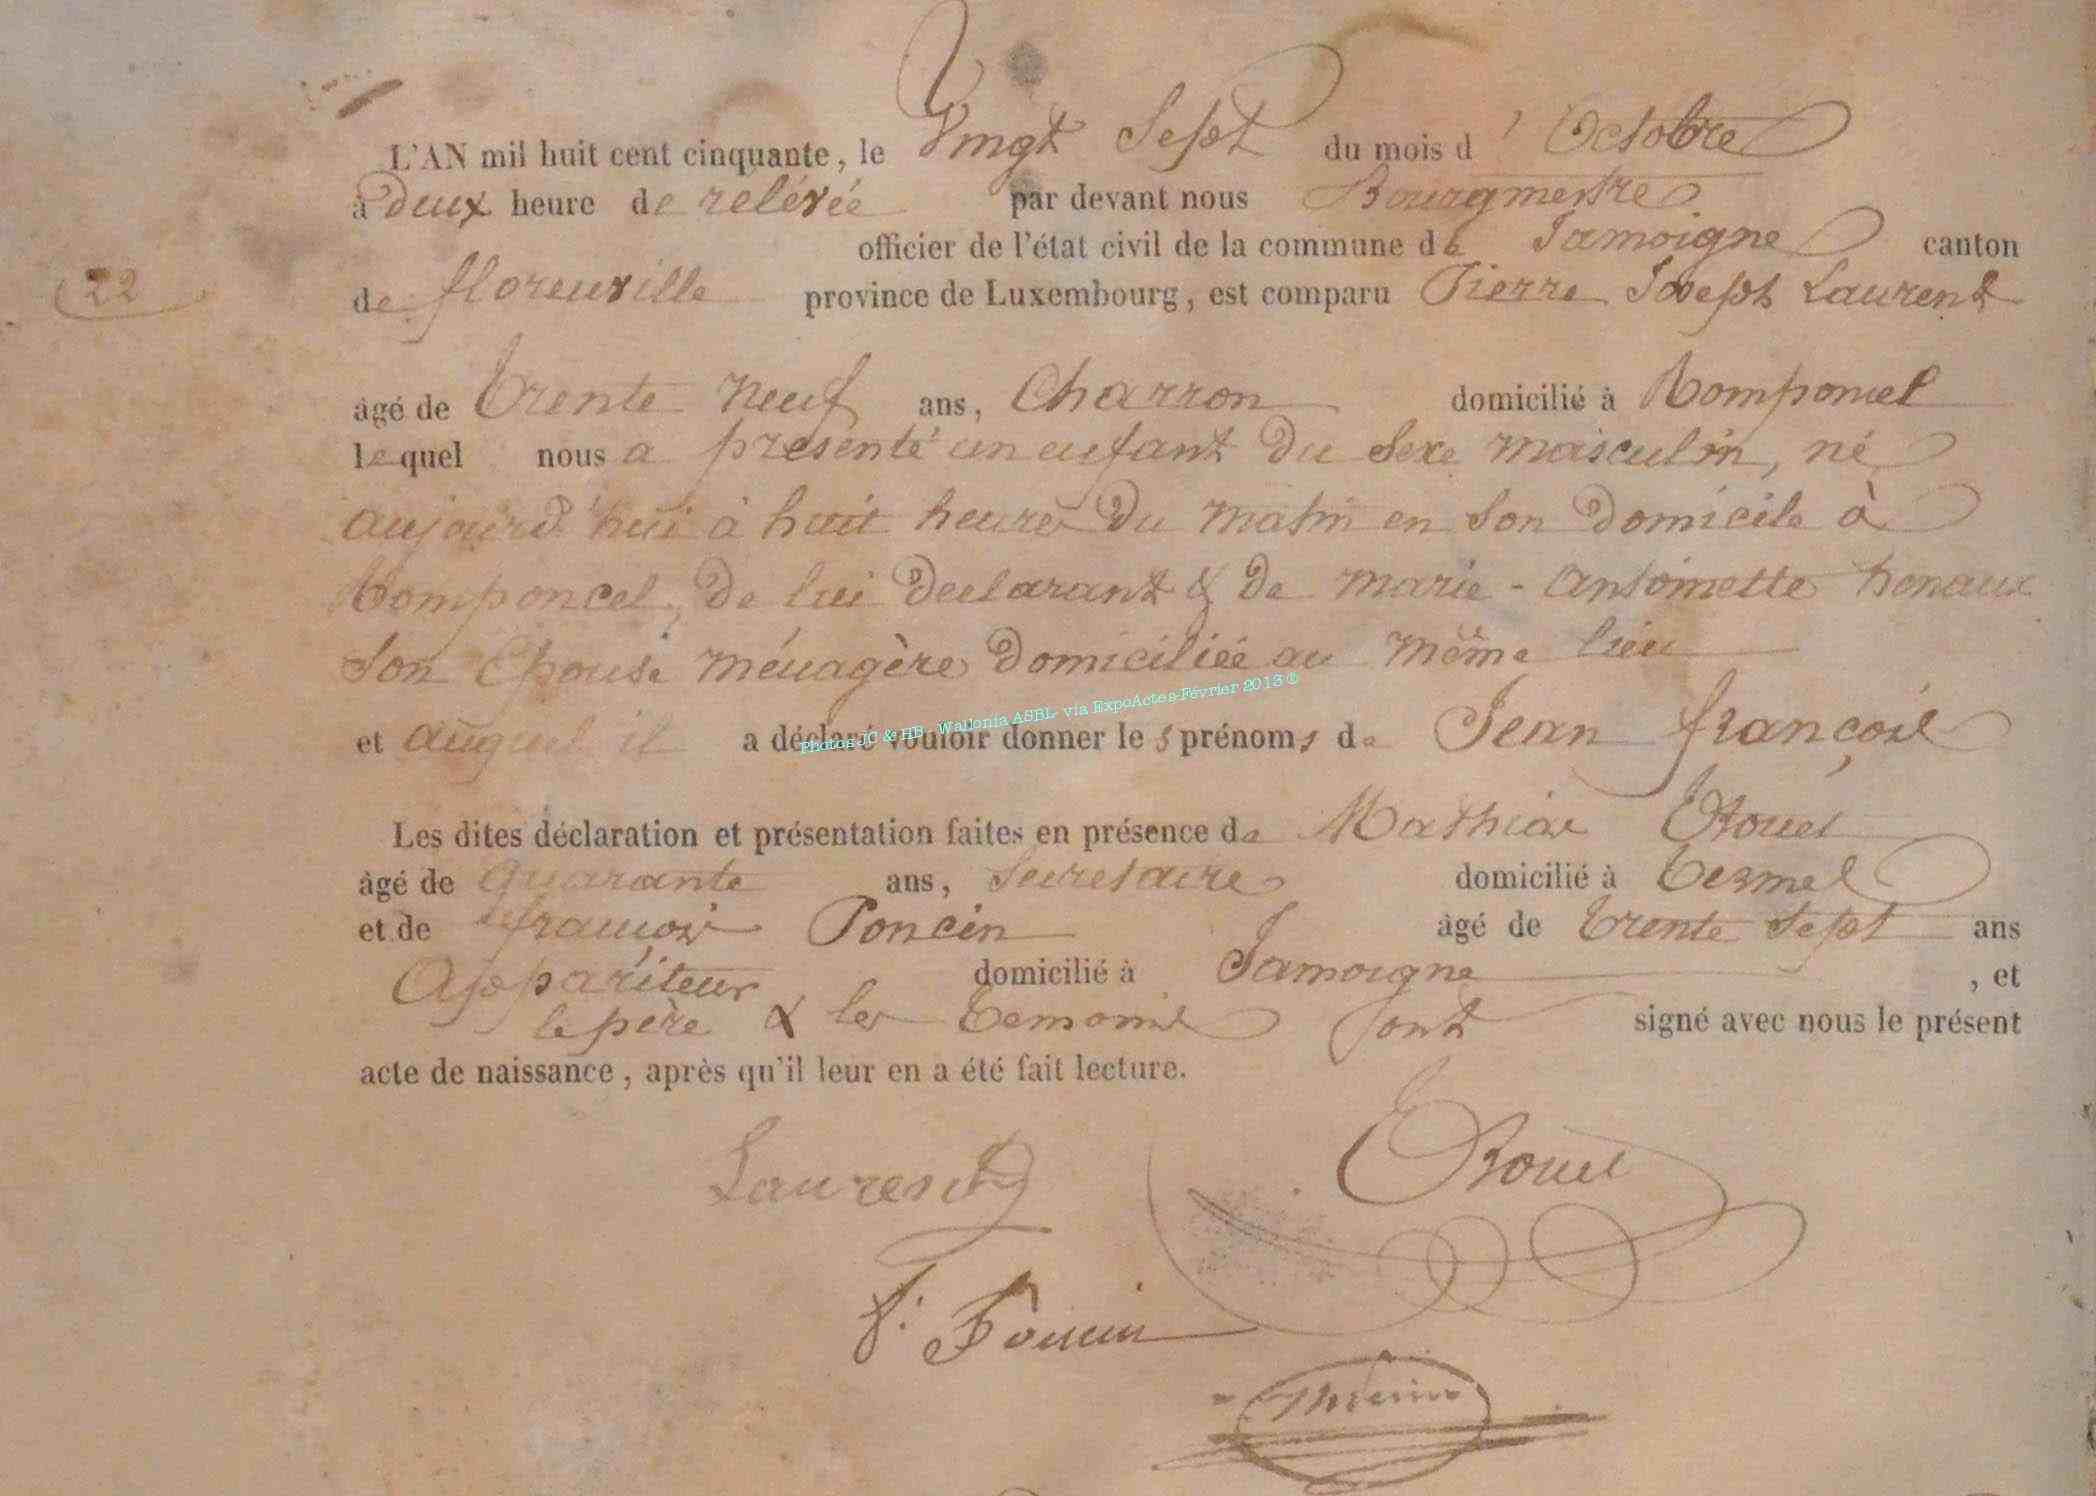 L'AN mil huit cent cinquante, le Vingt Sept du mois d'Octobre
à deux heure de relévée par devant nous Bourgmestre
officier de l'état civil de la commune de Jamoigne canton
22
de florenville province de Luxembourg, est comparu Pierre Joseph Laurent
âgé de trente neuf ans, Charron domicilié à Romponcel
lequel nous a présenté un enfant du sexe masculin, né
aujourd'hui à huit heures du matin en son domicile à
Romponcel, de lui declarant & de marie-antoinette henaux
son épouse ménagère domiciliée au même lieu
et auquel il a déclaré vouloir donner les prénoms de Jean françois
Photos JC & HB - Wallonia ASBL- via ExpoActes-Février 2013 ®
Les dites déclaration et présentation faites en présence de Mathias
âgé de quarante ans, Secretaire domicilié à termes
et de françois Poncin âgé de trente sept ans
Appariteur domicilié à Jamoigne, et
le père & les temoins ont signé avec nous le présent
acte de naissance, après qu'il leur en a été fait lecture.
Laurent
f. Poncin